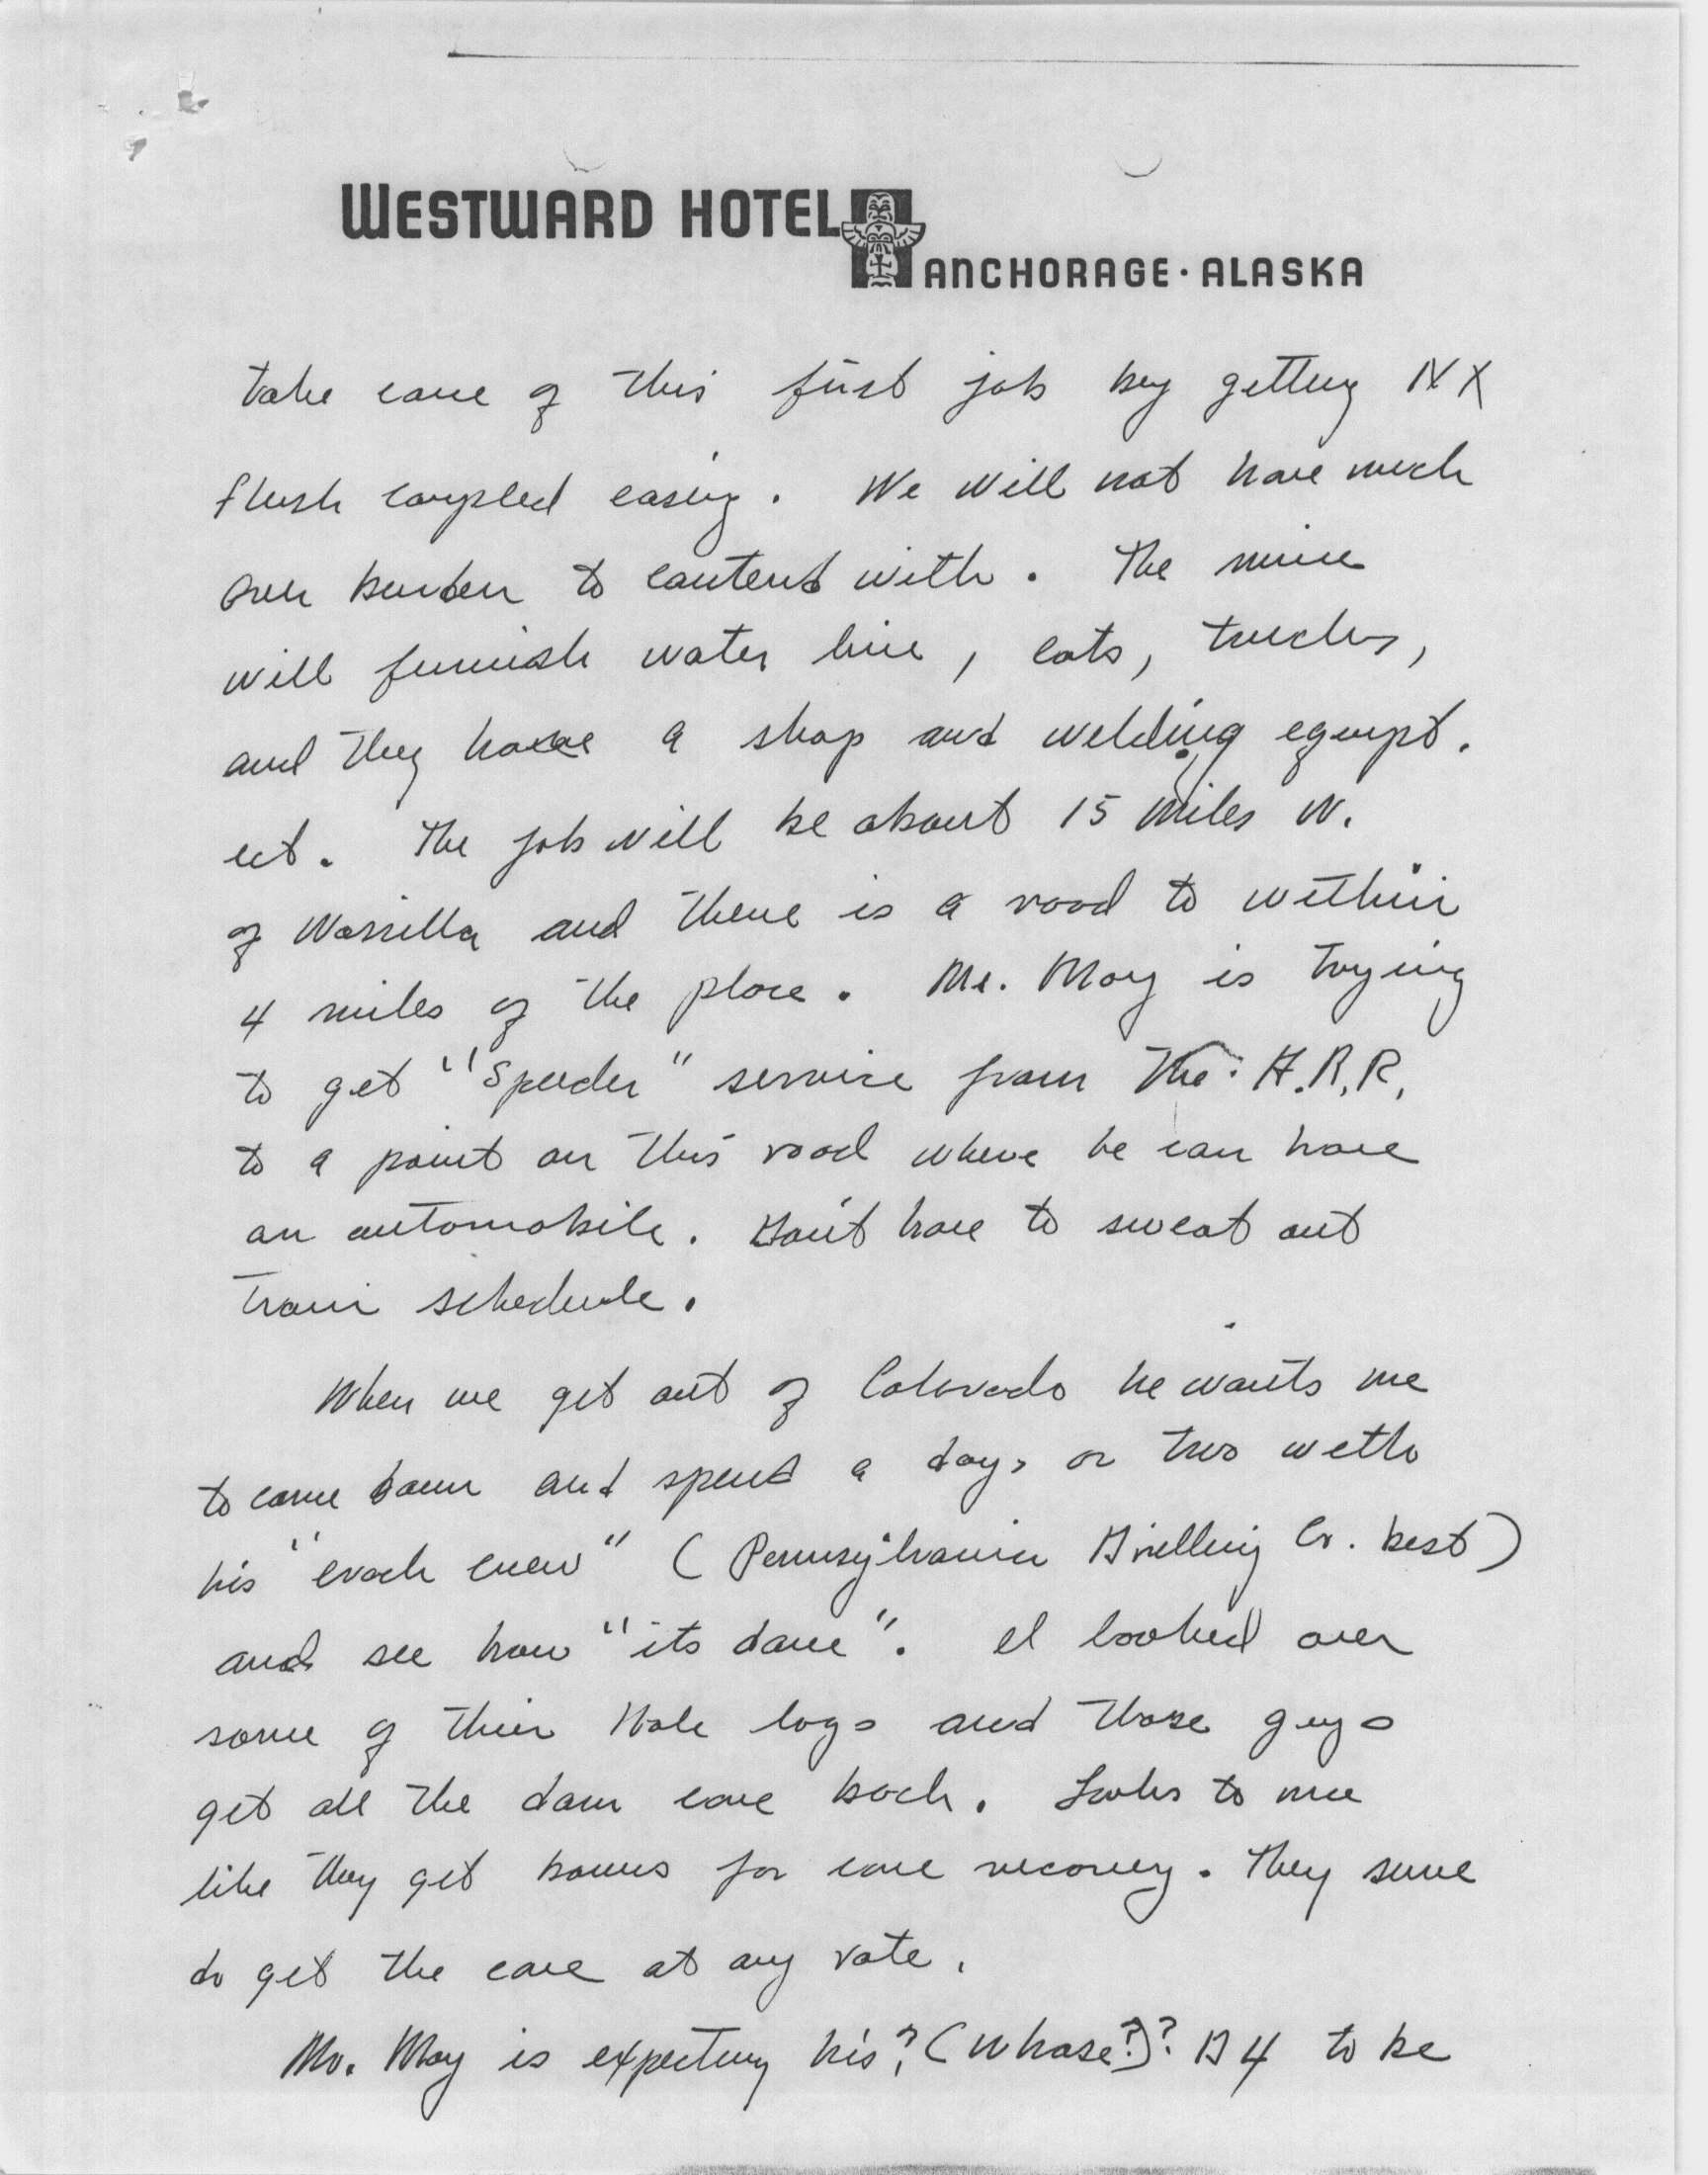 WESTWARD HOTEL
ANCHORAGE · ALASKA
take care of this first job by getting NX
flush coupled casing. We will not have much
over burden to contend with. The mine
will furnish water line, cats, trucks,
and they have a shop and welding equipt.
ect. The job will be about 15 miles W.
of Wassilla and there is a road to within
4 miles of the place. Mr. May is trying
to get "Speeder" service from the A.R.R.
to a point on this road where he can have
an automobile. Don't have to sweat out
train schedule.
When we get out of Colorado he wants me
to come down and spend a day, or two with
his "crack crew" (Pennsylvania Drilling Co. best)
and see how "its done". I looked over
some of their Hole logs and those guys
get all the dam core back. Looks to me
like they get bonus for core recovery. They sure
do get the core at any rate.
Mr. May is expecting his? (whose?)? B4 to be